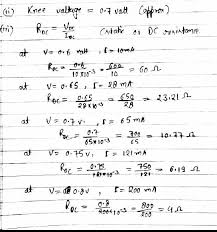 (ii) Knee voltage = 0.7 volt (approx)
(iii) R_DC = V_DC / I_DC (static or DC resistance
at V = 0.6 volt, I = 10mA
R_DC = 0.6 / 10×10⁻³ = 600 / 10 = 60 Ω
at V = 0.65, I = 28 mA
R_DC = 0.65 / 28×10⁻³ = 650 / 28 = 23.21 Ω
at V = 0.7v, I = 65 mA
R_DC = 0.7 / 65×10⁻³ = 700 / 65 = 10.77 Ω
at V = 0.75v, I = 121mA
R_DC = 0.75 / 121×10⁻³ = 750 / 121 = 6.19 Ω
at V = 0.8v, I = 200 mA
R_DC = 0.8 / 200×10⁻³ = 800 / 200 = 4 Ω